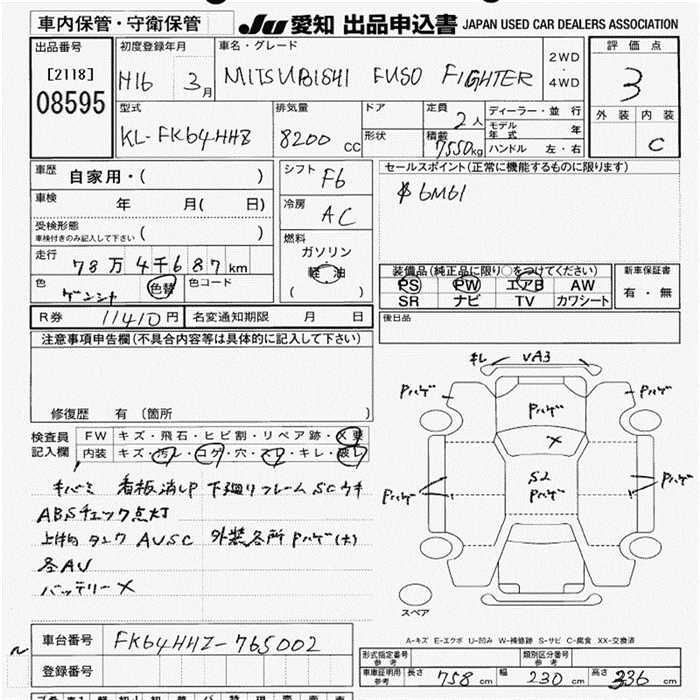 車内保管・守衛保管 JU 愛知 出品申込書 JAPAN USED CAR DEALERS ASSOCIATION
出品番号 初度登録年月 車名・グレード 2WD・4WD 評価点
[2118] H16 3月 MITSUBISHI FUSO FIGHTER 3
08595
型式 排気量 ドア 定員 2人 ディーラー・並行 外装 内装
KL-FK64HHZ 8200 CC 形状 積載 7550kg モデル年式 年 C
ハンドル 左・右
車歴 自家用・( ) シフト F6 セールスポイント(正常に機能するものに限ります)
車検 年 月( 日) 冷房 AC 6M61
受検形態 ( )
車検付きのみ記入して下さい
燃料
ガソリン
軽油
( )
走行 78万4千687km
色 色替 色コード
装備品(純正品に限り○をつけてください) 新車保証書
PS PW エアB AW 有・無
SR ナビ TV カワシート
R券 11410円 名変通知期限 月 日 後日品
注意事項申告欄(不具合内容等は具体的に記入して下さい)
修復歴 有(箇所 )
キレ VA3
Pハゲ Pハゲ
Pハゲ
X
S2
Pハゲ
Pハゲ Pハゲ
検査員記入欄 FW キズ・飛石・ヒビ割・リペア跡・X要
内装 キズ・汚レ・コゲ・穴・スレ・キレ・破レ
キバミ 看板消しP 下廻りフレームSCウキ
ABSチェック点灯
上物 タンク AUSC 外装各所Pハゲ(大)
各AU
バッテリーX
スペア
A-キズ E-エクボ U-凹み W-補修跡 S-サビ C-腐食 XX-交換済
車台番号 FK64HHZ-765002
登録番号
形式指定番号 参考 類別区分番号 参考
車庫証明用 参考 長さ 758cm 幅 230cm 高さ 336cm